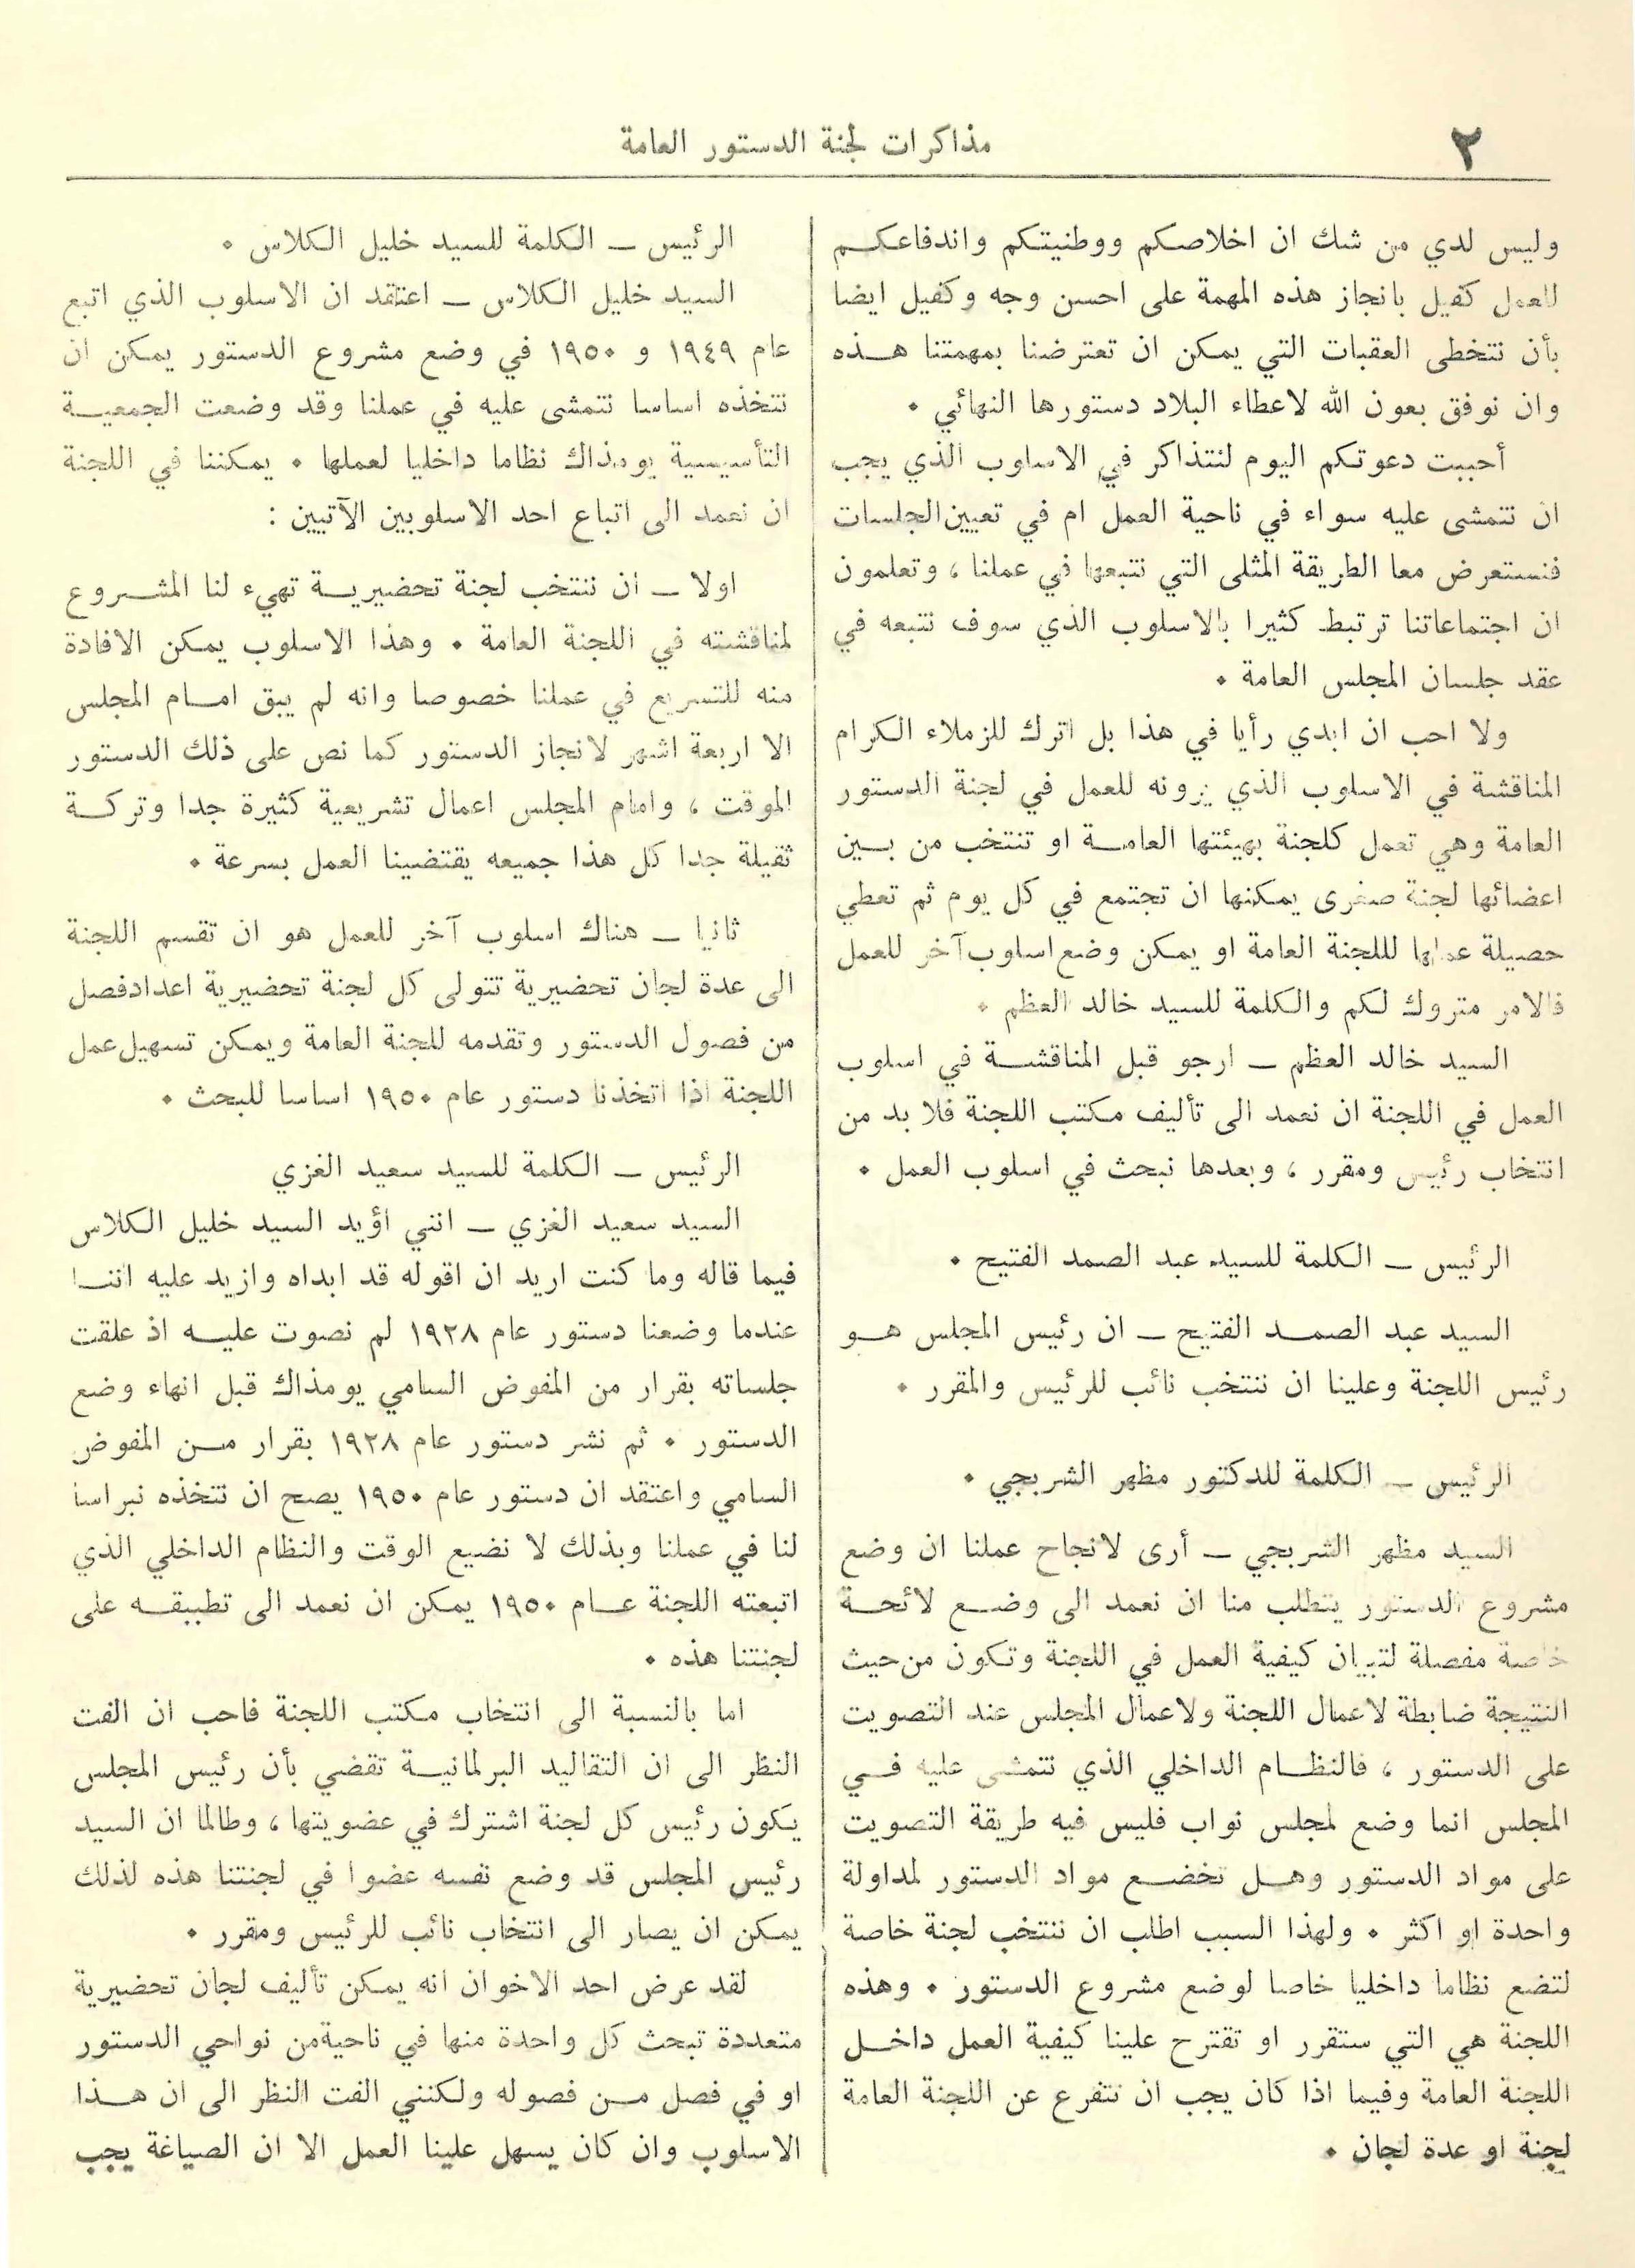 ٢
مذاكرات لجنة الدستور العامة
وليس لدي من شك ان اخلاصكم ووطنيتكم واندفاعكم
للعمل كفيل بانجاز هذه المهمة على احسن وجه وكفيل ايضا
بأن نتخطى العقبات التي يمكن ان تعترضنا بمهمتنا هذه
وان نوفق بعون الله لاعطاء البلاد دستورها النهائي ٠
أحببت دعوتكم اليوم لنتذاكر في الاسلوب الذي يجب
ان نتمشى عليه سواء في ناحية العمل ام في تعيين الجلسات
فنستعرض معا الطريقة المثلى التي نتبعها في عملنا ، وتعلمون
ان اجتماعاتنا ترتبط كثيرا بالاسلوب الذي سوف نتبعه في
عقد جلسان المجلس العامة ٠
ولا احب ان ابدي رأيا في هذا بل اترك للزملاء الكرام
المناقشة في الاسلوب الذي يرونه للعمل في لجنة الدستور
العامة وهي تعمل كلجنة بهيئتها العامة او تنتخب من بين
اعضائها لجنة صغرى يمكنها ان تجتمع في كل يوم ثم تعطي
حصيلة عملها لللجنة العامة او يمكن وضع اسلوب آخر للعمل
فالامر متروك لكم والكلمة للسيد خالد العظم ٠
السيد خالد العظم ـ ارجو قبل المناقشة في اسلوب
العمل في اللجنة ان نعمد الى تأليف مكتب اللجنة فلا بد من
انتخاب رئيس ومقرر ، وبعدها نبحث في اسلوب العمل ٠
الرئيس ـ الكلمة للسيد عبد الصمد الفتيح ٠
السيد عبد الصمد الفتيح ـ ان رئيس المجلس هو
رئيس اللجنة وعلينا ان ننتخب نائب للرئيس والمقرر ٠
الرئيس ـ الكلمة للدكتور مظهر الشربجي ٠
السيد مظهر الشربجي ـ أرى لانجاح عملنا ان وضع
مشروع الدستور يتطلب منا ان نعمد الى وضع لائحة
خاصة مفصلة لتبيان كيفية العمل في اللجنة وتكون من حيث
النتيجة ضابطة لاعمال اللجنة ولاعمال المجلس عند التصويت
على الدستور ، فالنظام الداخلي الذي نتمشى عليه في
المجلس انما وضع لمجلس نواب فليس فيه طريقة التصويت
على مواد الدستور وهل تخضع مواد الدستور لمداولة
واحدة او اكثر ٠ ولهذا السبب اطلب ان ننتخب لجنة خاصة
لتضع نظاما داخليا خاصا لوضع مشروع الدستور ٠ وهذه
اللجنة هي التي ستقرر او تقترح علينا كيفية العمل داخل
اللجنة العامة وفيما اذا كان يجب ان تتفرع عن اللجنة العامة
لجنة او عدة لجان ٠
الرئيس ـ الكلمة للسيد خليل الكلاس ٠
السيد خليل الكلاس ـ اعتقد ان الاسلوب الذي اتبع
عام ١٩٤٩ و ١٩٥٠ في وضع مشروع الدستور يمكن ان
نتخذه اساسا نتمشى عليه في عملنا وقد وضعت الجمعية
التأسيسية يومذاك نظاما داخليا لعملها ٠ يمكننا في اللجنة
ان نعمد الى اتباع احد الاسلوبين الآتيين :
اولا ـ ان ننتخب لجنة تحضيرية تهيء لنا المشروع
لمناقشته في اللجنة العامة ٠ وهذا الاسلوب يمكن الافادة
منه للتسريع في عملنا خصوصا وانه لم يبق امام المجلس
الا اربعة اشهر لانجاز الدستور كما نص على ذلك الدستور
الموقت ، وامام المجلس اعمال تشريعية كثيرة جدا وتركة
ثقيلة جدا كل هذا جميعه يقتضينا العمل بسرعة ٠
ثانيا ـ هناك اسلوب آخر للعمل هو ان تقسم اللجنة
الى عدة لجان تحضيرية تتولى كل لجنة تحضيرية اعداد فصل
من فصول الدستور وتقدمه للجنة العامة ويمكن تسهيل عمل
اللجنة اذا اتخذنا دستور عام ١٩٥٠ اساسا للبحث ٠
الرئيس ـ الكلمة للسيد سعيد الغزي
السيد سعيد الغزي ـ انني اؤيد السيد خليل الكلاس
فيما قاله وما كنت اريد ان اقوله قد ابداه وازيد عليه اننا
عندما وضعنا دستور عام ١٩٢٨ لم نصوت عليه اذ علقت
جلساته بقرار من المفوض السامي يومذاك قبل انهاء وضع
الدستور ٠ ثم نشر دستور عام ١٩٢٨ بقرار من المفوض
السامي واعتقد ان دستور عام ١٩٥٠ يصح ان نتخذه نبراسا
لنا في عملنا وبذلك لا نضيع الوقت والنظام الداخلي الذي
اتبعته اللجنة عام ١٩٥٠ يمكن ان نعمد الى تطبيقه على
لجنتنا هذه ٠
اما بالنسبة الى انتخاب مكتب اللجنة فاحب ان الفت
النظر الى ان التقاليد البرلمانية تقضي بأن رئيس المجلس
يكون رئيس كل لجنة اشترك في عضويتها ، وطالما ان السيد
رئيس المجلس قد وضع نفسه عضوا في لجنتنا هذه لذلك
يمكن ان يصار الى انتخاب نائب للرئيس ومقرر ٠
لقد عرض احد الاخوان انه يمكن تأليف لجان تحضيرية
متعددة تبحث كل واحدة منها في ناحية من نواحي الدستور
او في فصل من فصوله ولكنني الفت النظر الى ان هذا
الاسلوب وان كان يسهل علينا العمل الا ان الصياغة يجب